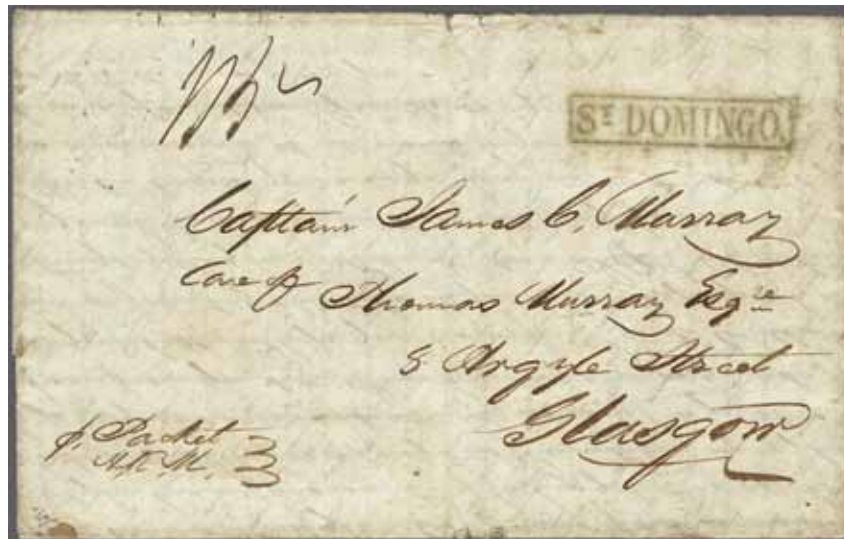 St DOMINGO.
Captain James C. Murray
Care of Thomas Murray Esqre
8 Argyle Street
Glasgow
p. Packet